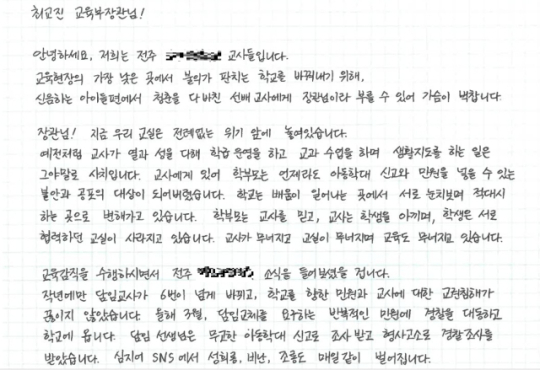 최교진 교육부장관님!
안녕하세요, 저희는 전주 교사들입니다.
교육현장의 가장 낮은 곳에서 불의가 판치는 학교를 바꿔내기 위해,
신음하는 아이들편에서 청춘을 다 바친 선배 교사에게 장관님이라 부를 수 있어 가슴이 벅찹니다.
장관님! 지금 우리 교실은 전례없는 위기 앞에 놓여있습니다.
예전처럼 교사가 열과 성을 다해 학급 운영을 하고 교과 수업을 하며 생활지도를 하는 일은
그야말로 사치입니다. 교사에게 있어 학부모는 언제라도 아동학대 신고와 민원을 넣을 수 있는
불안과 공포의 대상이 되어버렸습니다. 학교는 배움이 일어나는 곳에서 서로 눈치보며 적대시
하는 곳으로 변해가고 있습니다. 학부모는 교사를 믿고, 교사는 학생을 아끼며, 학생은 서로
협력하던 교실이 사라지고 있습니다. 교사가 무너지고 교실이 무너지며 교육도 무너지고 있습니다.
교육감직을 수행하시면서 전주 소식을 들어보셨을 겁니다.
작년에만 담임교사가 6번이 넘게 바뀌고, 학교를 향한 민원과 교사에 대한 교권침해가
끊이지 않았습니다. 올해 3월, 담임교체를 요구하는 반복적인 민원에 경찰을 대동하고
학교에 옵니다. 담임 선생님은 무고한 아동학대 신고로 조사 받고 형사고소로 경찰조사를
받았습니다. 심지어 SNS에서 성희롱, 비난, 조롱도 매일같이 벌어집니다.